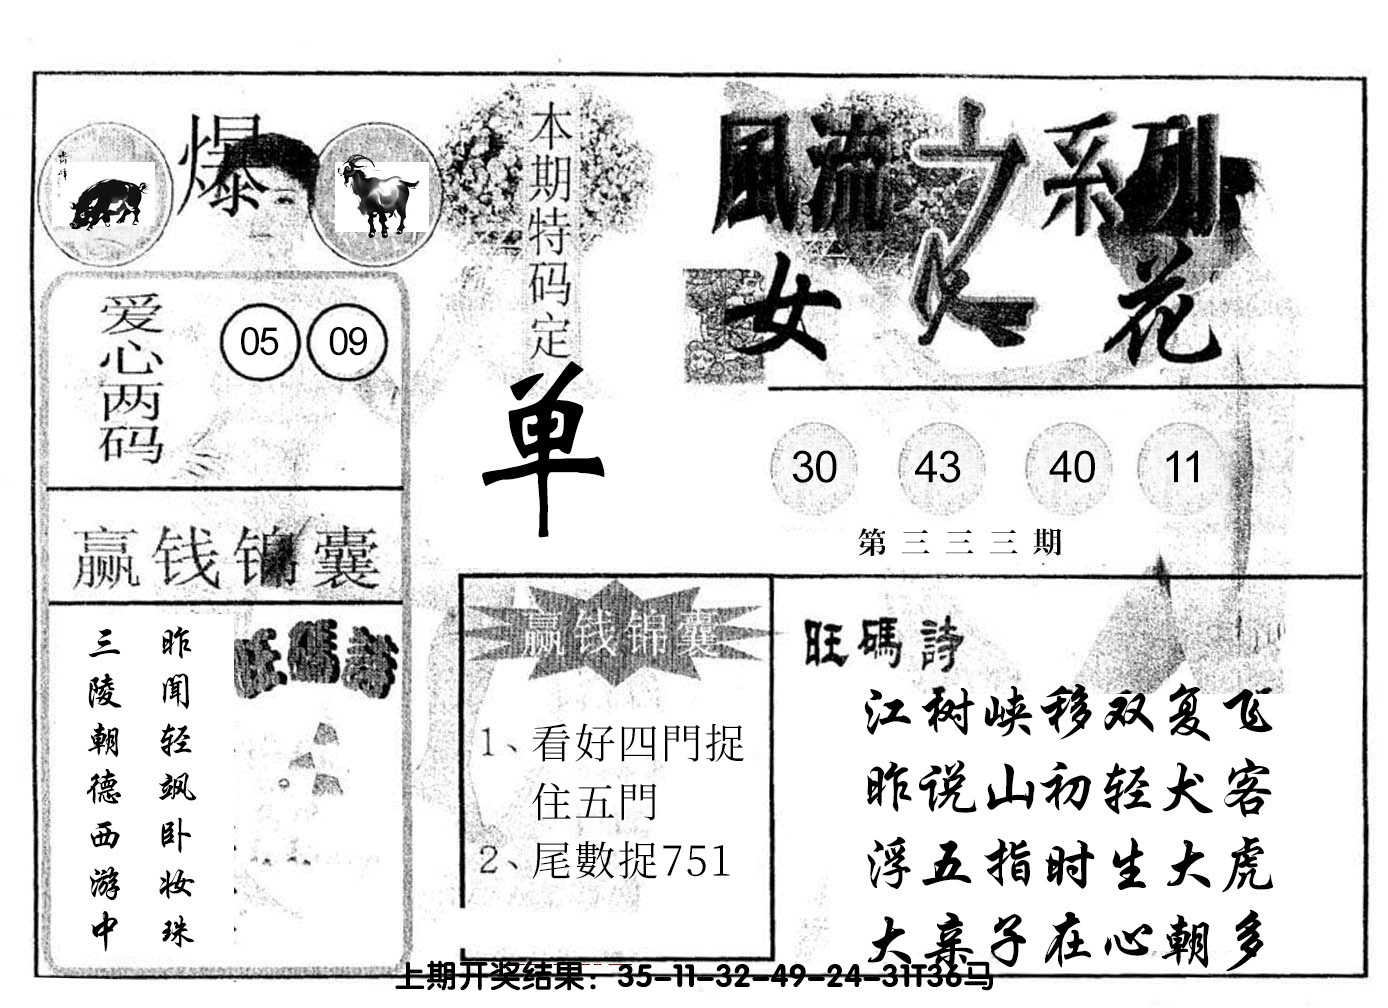 爆
爱心两码
05 09
赢钱锦囊
昨闻轻飒卧妆珠
三陵朝德西游中
旺碼詩
本期特码定
单
風流之系列
女人花
30 43 40 11
第三三三期
赢钱锦囊
1、看好四門捉
住五門
2、尾數捉751
旺碼詩
江树峡移双复飞
昨说山初轻犬客
浮五指时生大虎
大亲子在心朝多
上期开奖结果：35-11-32-49-24-31T36马